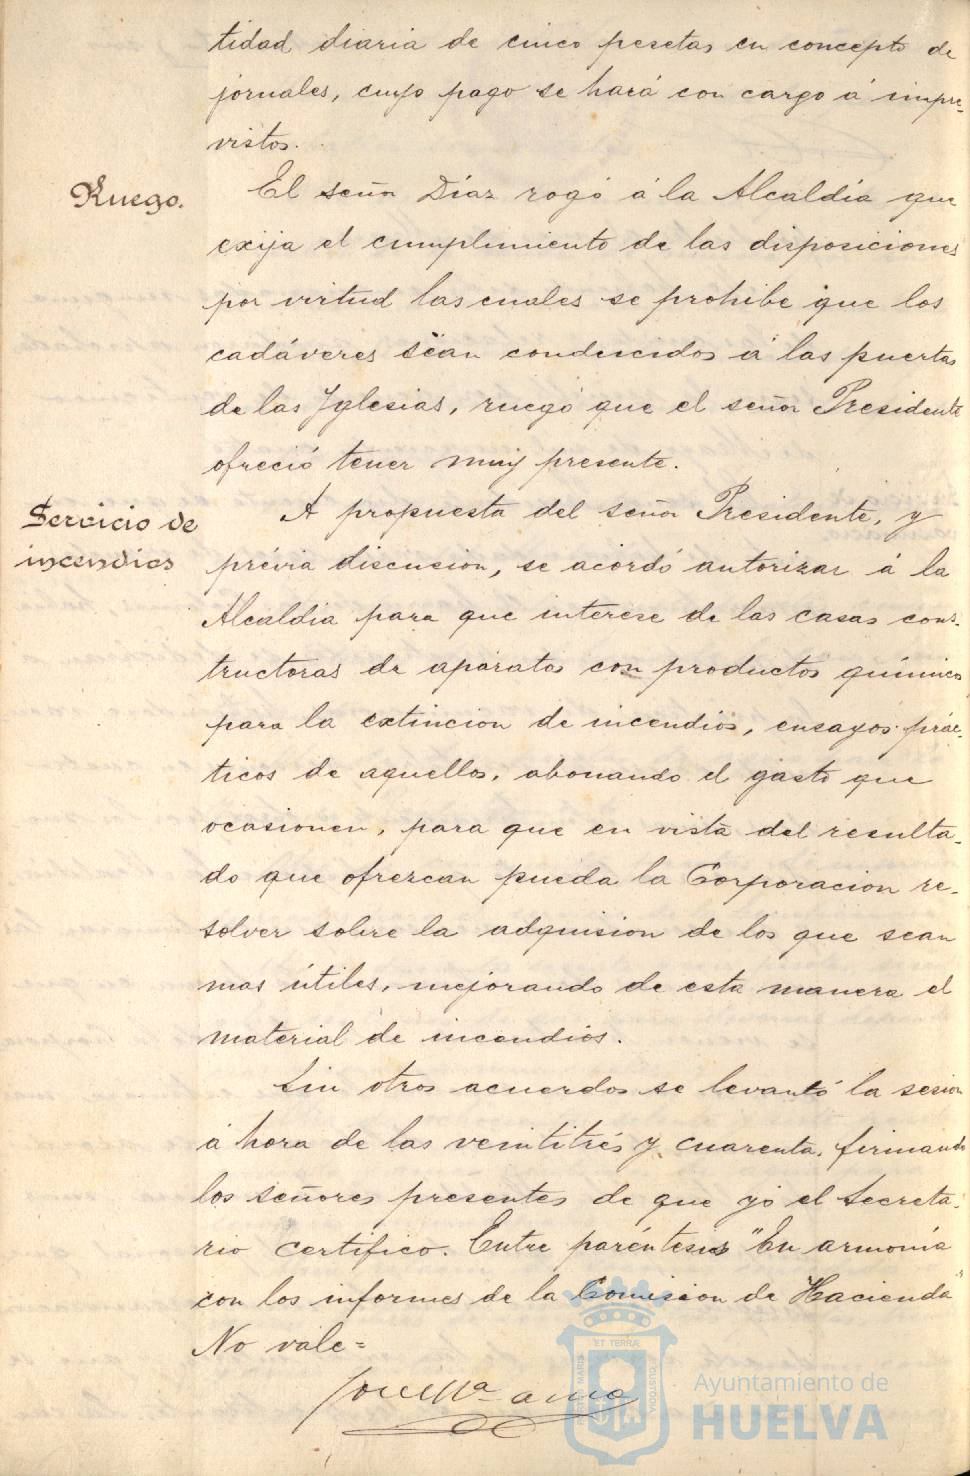 tidad diaria de cinco pesetas en concepto de
jornales, cuyo pago se hará con cargo á impre-
vistos.
Ruego.
El señor Díaz rogó á la Alcaldía que
exija el cumplimiento de las disposiciones
por virtud las cuales se prohibe que los
cadáveres sean conducidos á las puertas
de las Iglesias, ruego que el señor Presidente
ofreció tener muy presente.
Servicio de
incendios
A propuesta del señor Presidente, y
prévia discusion, se acordó autorizar á la
Alcaldía para que interese de las casas cons-
tructoras de aparatos con productos químicos
para la extincion de incendios, ensayos prác-
ticos de aquellos, abonando el gasto que
ocasionen, para que en vista del resulta-
do que ofrezcan pueda la Corporacion re-
solver sobre la adquision de los que sean
mas útiles, mejorando de esta manera el
material de incendios.
Sin otros acuerdos se levantó la sesion
á hora de las veintitrés y cuarenta, firmando
los señores presentes de que yo el Secreta-
rio certifico. Entre paréntesis "En armonía
con los informes de la Comision de Hacienda"
No vale=
ET TERRÆ
PORTUS MARIS
CUSTODIA
Ayuntamiento de
HUELVA